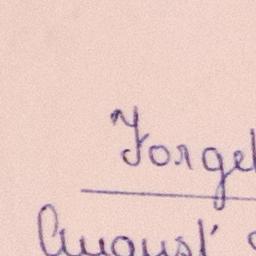 Forget
August